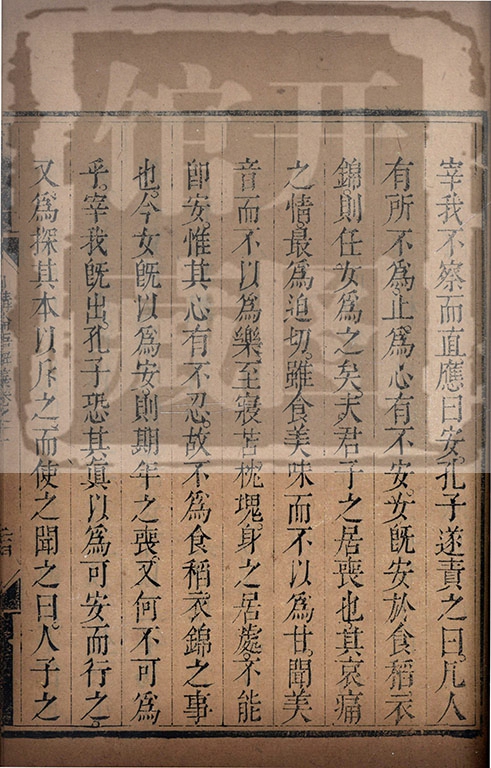 宰我不察而直應曰安。孔子遂責之曰。凡人
有所不爲。止爲心有不安。女旣安於食稻衣
錦。則任女爲之矣。夫君子之居喪也。其哀痛
之情。最爲迫切。雖食美味而不以爲甘。聞美
音而不以爲樂。至寢苫枕塊。身之居處。不能
卽安。惟其心有不忍。故不爲食稻衣錦之事
也。今女旣以爲安。則期年之喪。又何不可爲
乎。宰我旣出。孔子恐其眞以爲可安而行之。
又爲探其本以斥之。而使之聞之曰。人子之